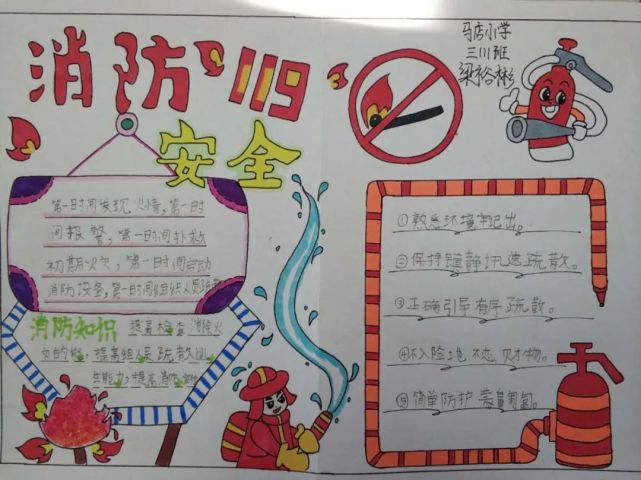 消防119
安全
马店小学
三川班
梁裕彬
第一时间发现火情,第一时
间报警,第一时间扑救
初期火灾,第一时间启动
消防设备,第一时间组织人员疏散
消防知识 提高检查消除火
提高组织人员疏散逃
生能力,提高消防
①熟悉环境牢记出。
②保持镇静迅速疏散。
③正确引导有序疏散。
④不入险地不恋财物。
⑤简单防护